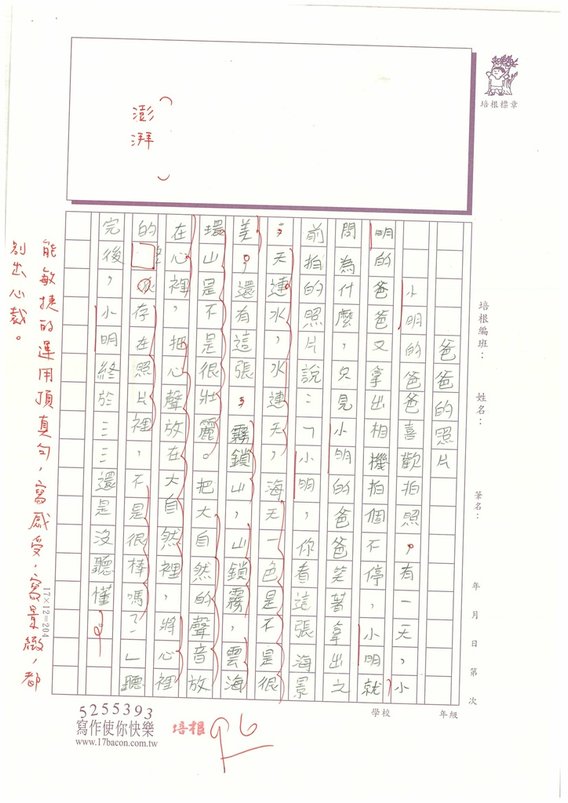 爸爸的照片
小明的爸爸喜歡拍照,有一天,小
明的爸爸又拿出相機拍個不停,小明就
問為什麼,只見小明的爸爸笑著拿出之
前拍的照片說:「小明,你看這張海景
:天連水,水連天,海天一色是不是很
美,還有這張:霧鎖山,山鎖霧,雲海
環山是不是很壯麗。把大自然的聲音放
在心裡,把心聲放在大自然裡,將心裡
的 存在照片裡,不是很棒嗎?」聽
完後,小明終於……還是沒聽懂。
澎湃
能敏捷的運用頂真句,寫感受,寫景緻,都
別出心裁。
培根標章
培根編班:
姓名:
筆名:
年 月 日 第 次
學校 年級
17×12=204
5255393
寫作使你快樂
www.17bacon.com.tw
培根 96